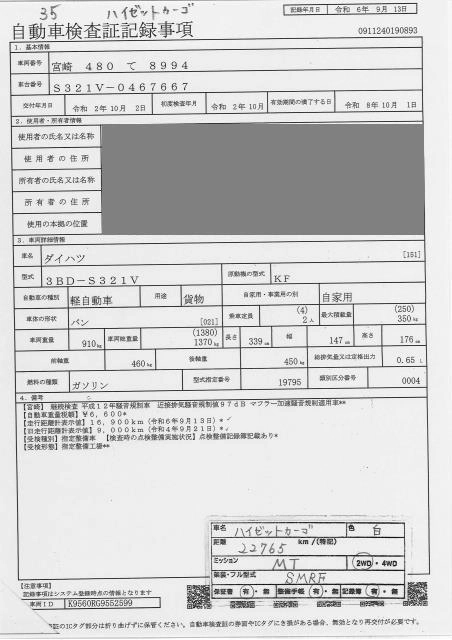 35 ハイゼットカーゴ
記録年月日 令和 6年 9月 13日
自動車検査証記録事項 0911240190893
1. 基本情報
車両番号 宮崎 480 て 8994
車台番号 S321V-0467667
交付年月日 令和 2年10月 2日 初度検査年月 令和 2年10月 有効期間の満了する日 令和 8年10月 1日
2. 使用者・所有者情報
使用者の氏名又は名称
使用者の住所
所有者の氏名又は名称
所有者の住所
使用の本拠の位置
3. 車両詳細情報
車名 ダイハツ [151]
型式 3BD-S321V 原動機の型式 KF
自動車の種別 軽自動車 用途 貨物 自家用・事業用の別 自家用
車体の形状 バン [021] 乗車定員 (4) 2人 最大積載量 (250) 350kg
車両重量 910kg 車両総重量 (1380) 1370kg 長さ 339cm 幅 147cm 高さ 176cm
前軸重 460kg 後軸重 450kg 総排気量又は定格出力 0.65 L
燃料の種類 ガソリン 型式指定番号 19795 類別区分番号 0004
4. 備考
【宮崎】 継続検査 平成12年騒音規制車 近接排気騒音規制値97dB マフラー加速騒音規制適用車**
【自動車重量税額】￥6,600*
【走行距離計表示値】16,900km(令和6年9月13日)*
【旧走行距離計表示値】9,000km(令和4年9月21日)*
【受検種別】指定整備車 【検査時の点検整備実施状況】点検整備記録簿記載あり*
【受検形態】指定整備工場**
車名 ハイゼットカーゴ 色 白
距離 22765 km/(特記)
ミッション MT 2WD・4WD
架装・フル型式 SMRF
保証書 有・無 整備手帳 有・無 記録簿 有・無
【注意事項】
記録事項はシステム登録時点の情報となります
車両ID K9560RG9552599
証のICタグ部分は折り曲げずに保管ください。自動車検査証の券面やICタグにき損がある場合、無効となり再交付が必要です。